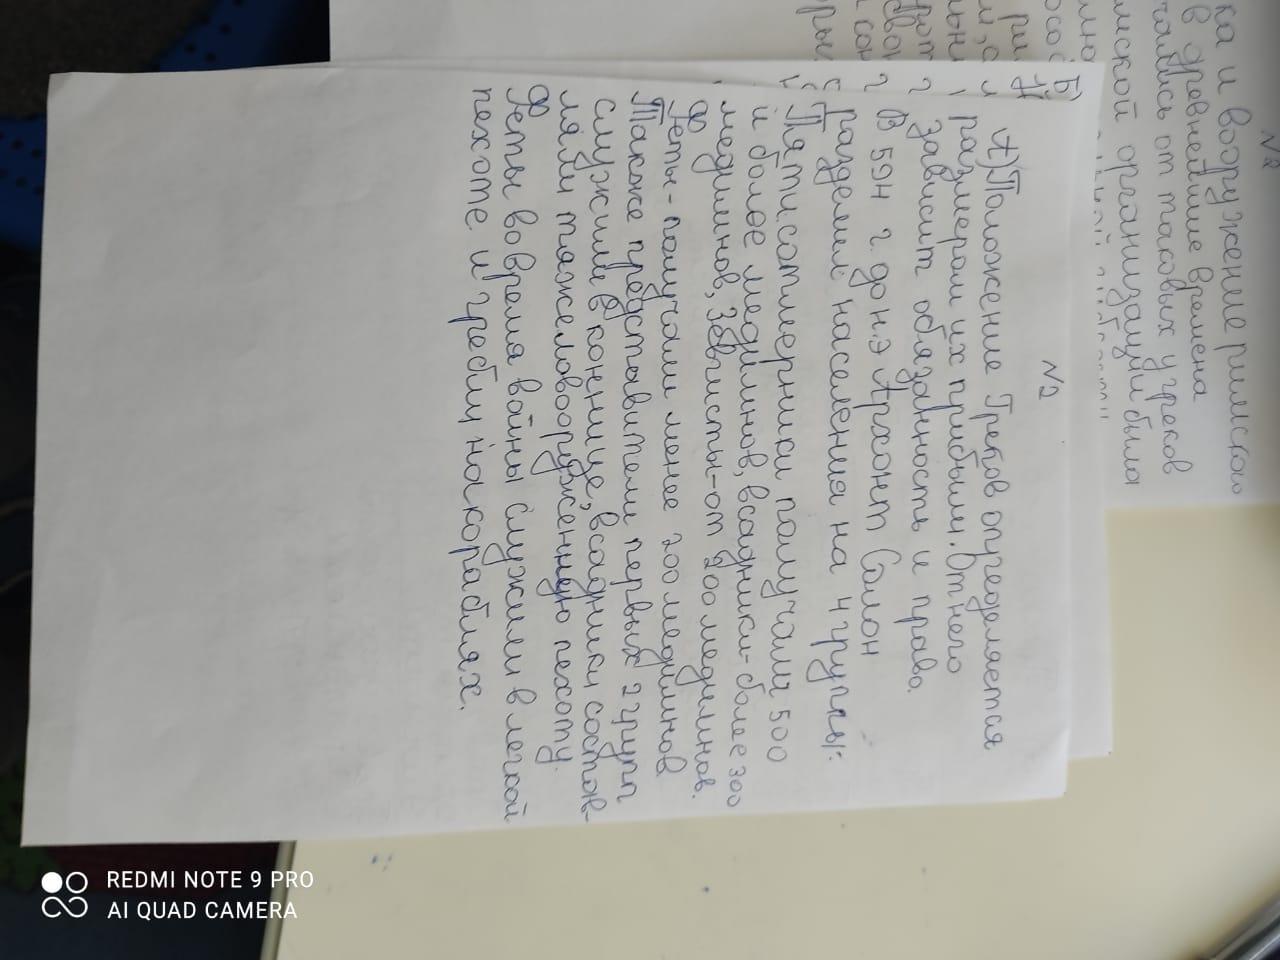 N2
А) Положение Греков определяется
размером их прибыли. От него
зависит обязанность и права.
В 594 г. до н.э Архонт Солон
разделил население на 4 группы:
Пятисотмерники получали 500
и более медимнов, всадники-более 300
медимнов, Зевгисты-от 200 медимнов.
Феты-получали менее 200 медимнов
Также представители первых 2 групп
служили в коннице, всадники состав-
ляли тяжеловооруженную пехоту.
Феты во время войны служили в легкой
пехоте и гребли на кораблях.
N2
ка и вооружение римского
в древнейшие времена
чались от таковых у греков
мской организации была
Б)
REDMI NOTE 9 PRO
AI QUAD CAMERA